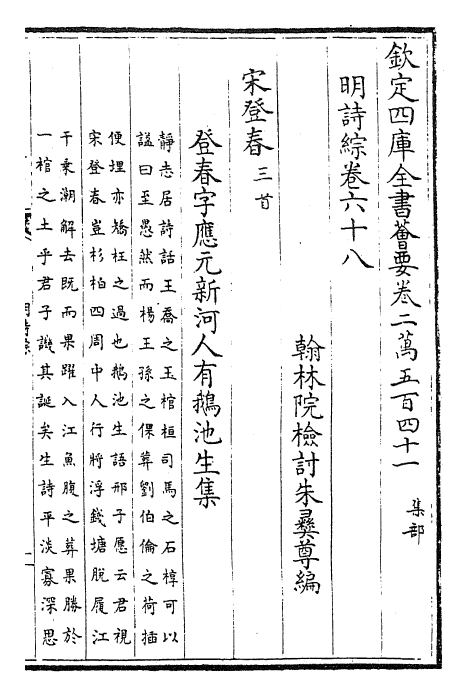 欽定四庫全書薈要卷二萬五百四十一 集部
明詩綜卷六十八
翰林院檢討朱彝尊編
宋登春三首
登春字應元新河人有鵝池生集
靜志居詩話王喬之玉棺桓司馬之石椁可以
謚曰至愚然而楊王孫之倮葬劉伯倫之荷插
便埋亦矯枉之過也鵝池生語邢子愿云君視
宋登春豈杉柏四周中人行將浮錢塘脫屣江
干乗潮解去既而果躍入江魚腹之葬果勝於
一棺之土乎君子譏其誕矣生詩平淡寡深思
明詩綜
一